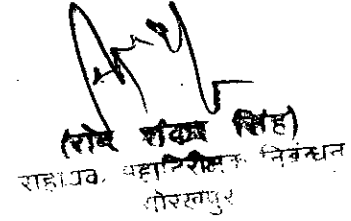 (रमेश शंकर सिंह)
सहायक महानिरीक्षक निबंधन
गोरखपुर